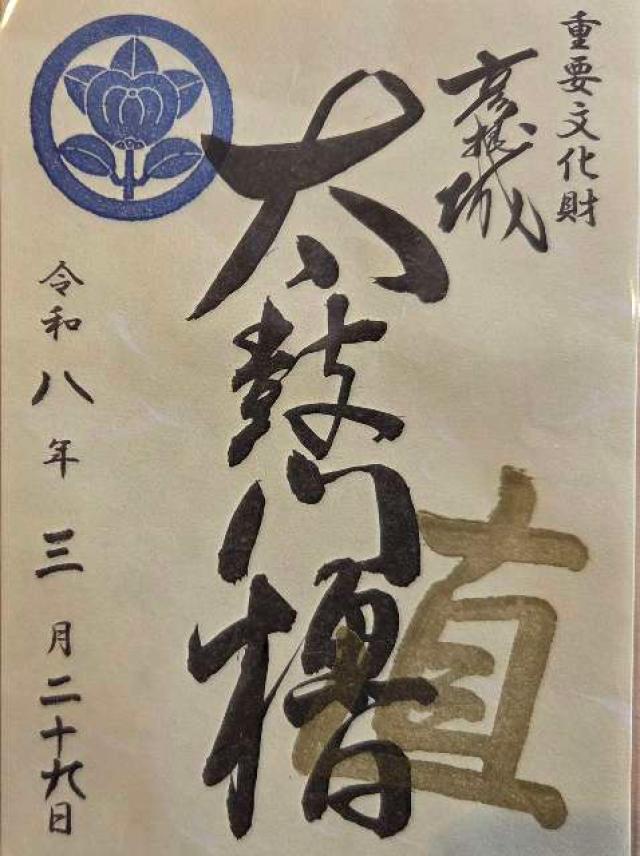 重要文化財
彦根城
太鼓門櫓
直
令和八年三月二十九日